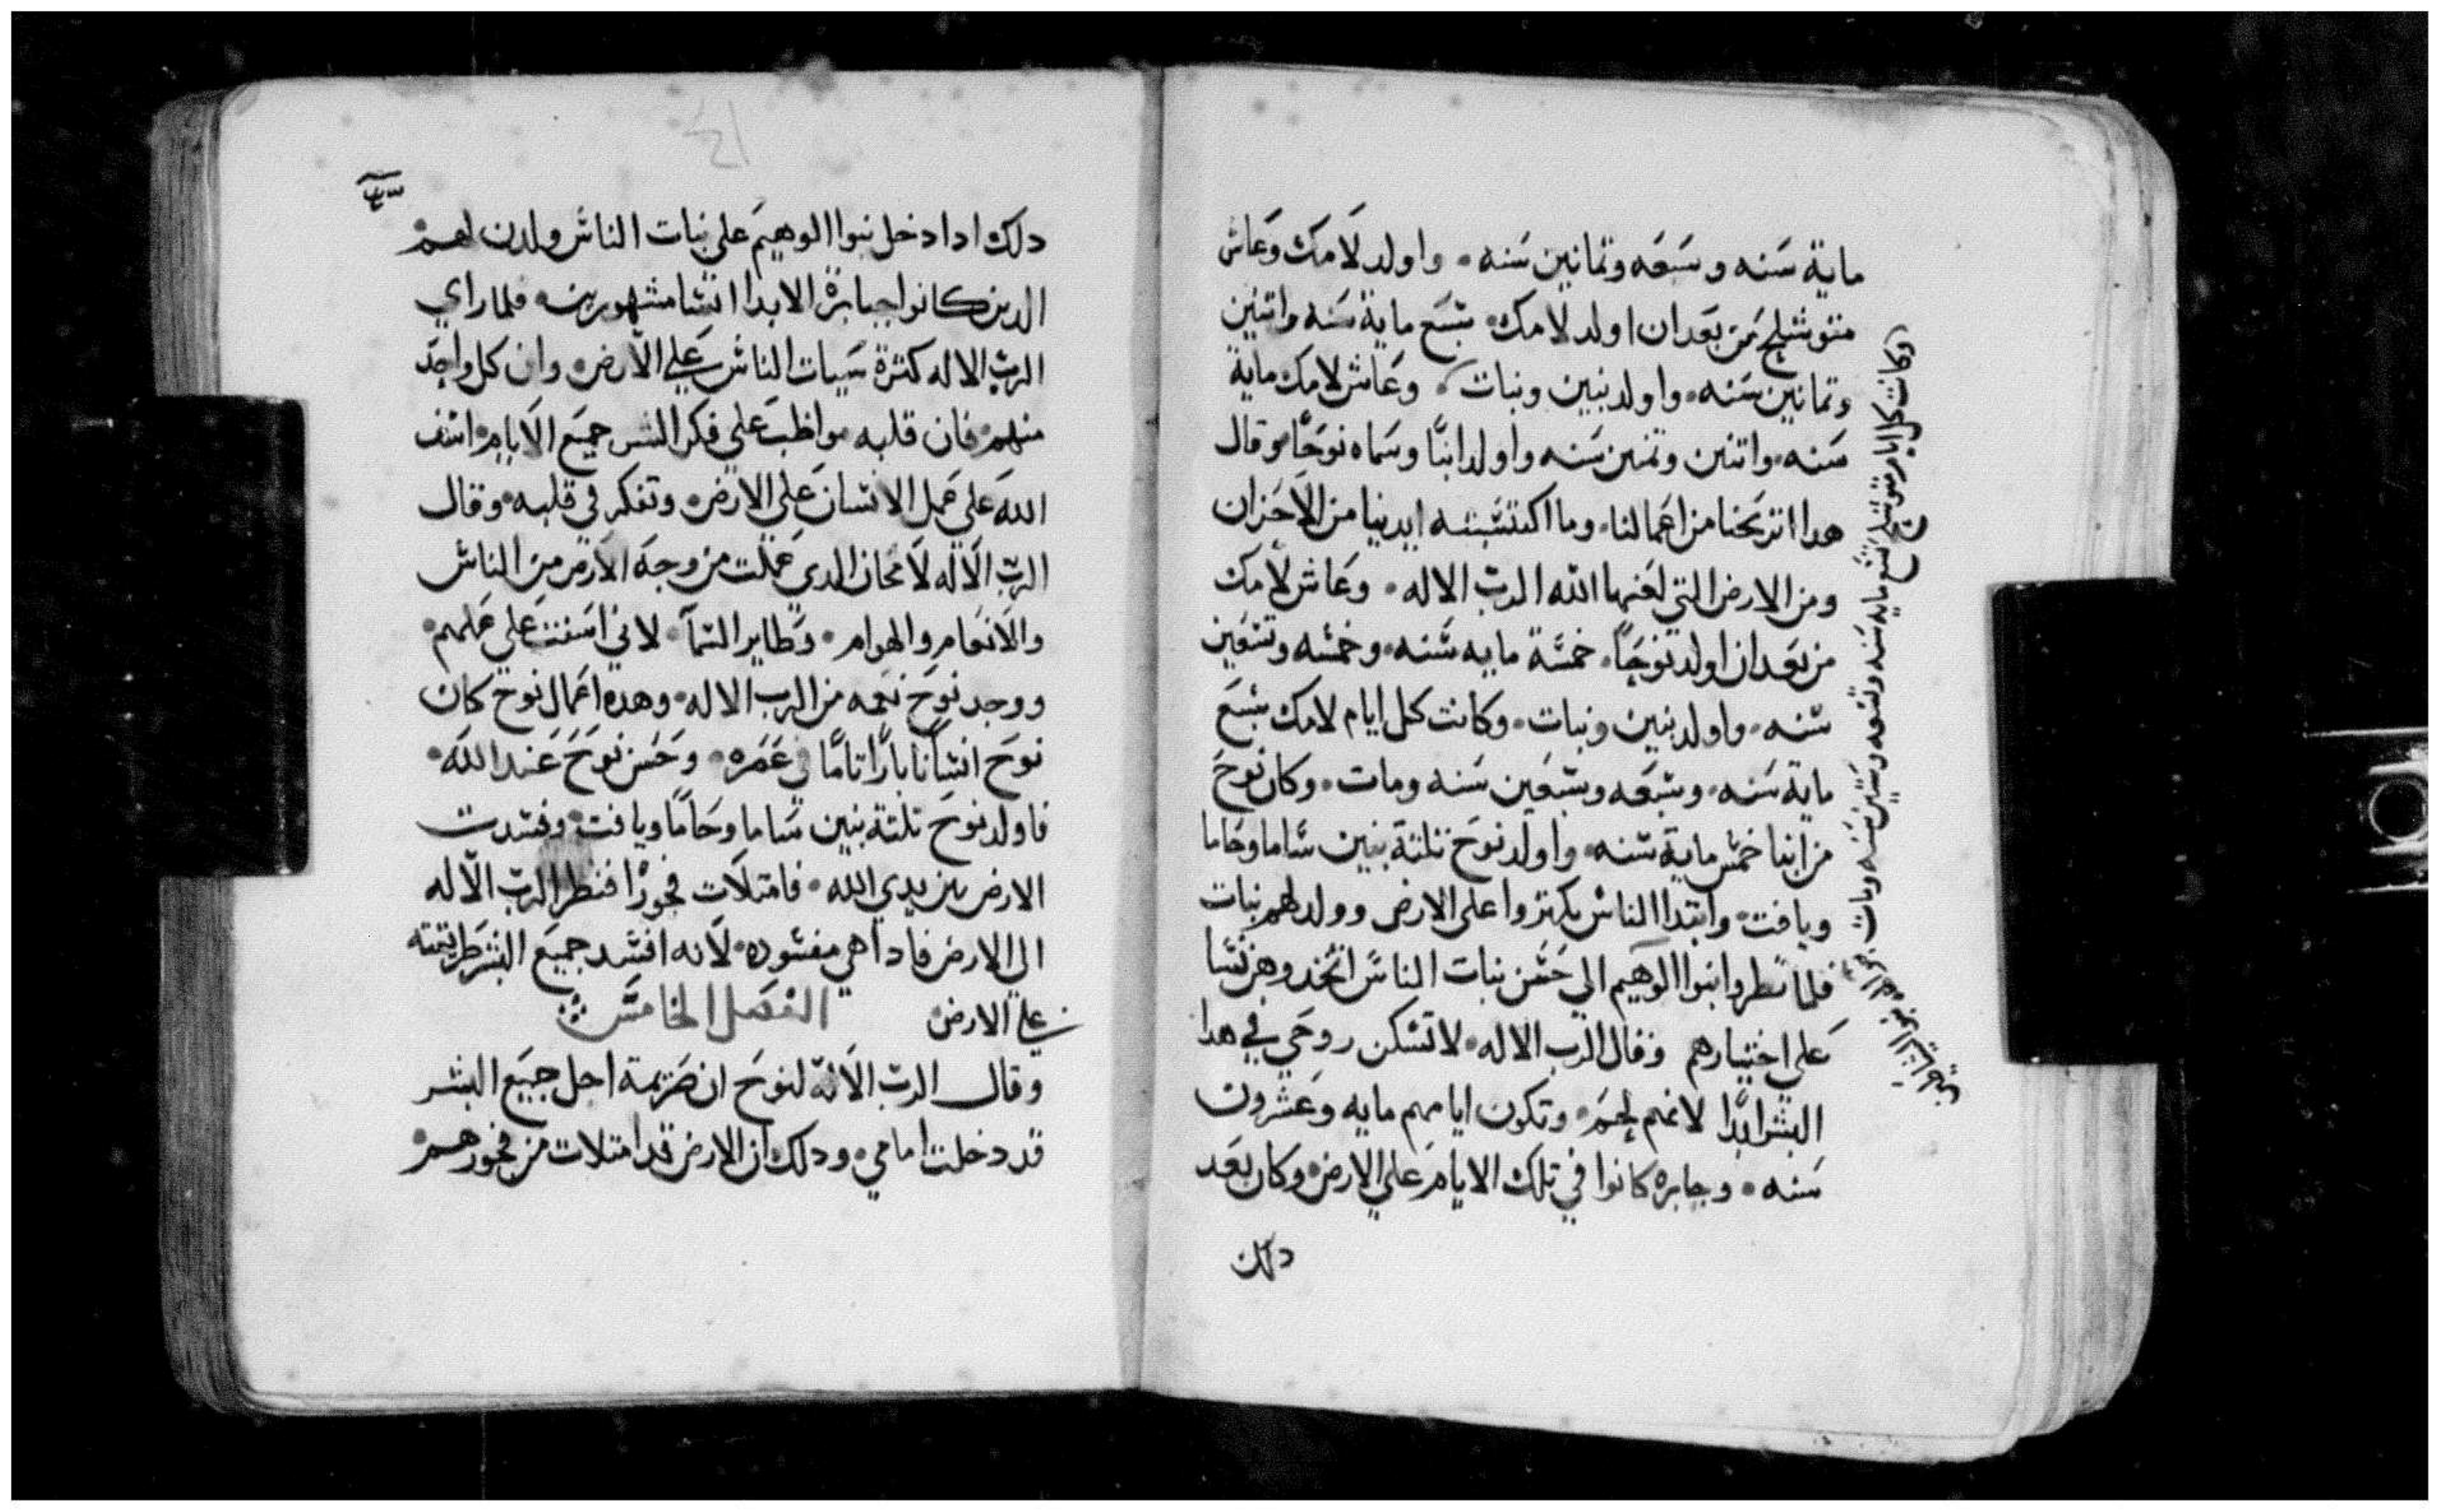 ماية سنه وسبعه وتمانين سنه. واولد لامك وعاش
متوشلح من بعد ان اولد لامك. تسع ماية سنه واتنين
وتمانين سنه. واولد بنين وبنات. وعاش لامك ماية
سنه. واتنين وتمنين سنه واولد ابنًا وسماه نوحًا. وقال
هدا اتريحنا من اعمالنا. وما اكتسبته ايدينا من الاحزان
ومن الارض التي لعنها الله الرب الاله. وعاش لامك
من بعد ان اولد نوحًا. خمسة مايه سنه. وخمسه وتسعين
سنه. واولد بنين وبنات. وكانت كل ايام لامك سبع
ماية سنه. وسبعه وسبعين سنه ومات. وكان نوح
من ابنا خمس ماية سنه. واولد نوح تلتة بنين ساما وحاما
ويافت. وابتدا الناس يكتروا على الارض وولد لهم بنات
فلما نظروا بنوا الوهيم الي حسن بنات الناس اتخدوهن نسا
علي اختيارهم وقال الرب الاله. لا تسكن روحي في هدا
البشر ابدًا لانهم لحم. وتكون ايامهم مايه وعشرون
سنه. وجبابره كانوا في تلك الايام علي الارض وكان بعد
دلك
وكانت كل ايام متوشلح تسع مايه سنه وتسعه وستين سنه ومات.
دلك ادا دخل بنوا الوهيم علي بنات الناس ولدن لهم
الدين كانوا جبابرة الابد اانسا مشهورين. فلما راي
الرب الاله كترة سيات الناس علي الارض. وان كل واحد
منهم. فان قلبه مواظب علي فكر الشر جميع الايام. اسف
الله علي عمل الانسان علي الارض. وتفكر في قلبه. وقال
الرب الاله لامحان الدي عملت من وجه الارض من الناس
والانعام والهوام. وطاير السمآ. لاني اسفت علي عملهم.
ووجد نوح نعمه من الرب الاله. وهده اعمال نوح كان
نوح انسانا بارًا تامًا في عمره. وحسن نوح عند الله.
فاولد نوح تلتة بنين ساما وحامًا ويافت. وفسدت
الارض بين يدي الله. فامتلات فجورًا فنظر الرب الاله
الي الارض فادا هي مفسوده. لانه افسد جميع البشر طريقته
علي الارض الفصل الخامس
وقال الرب الاله لنوح ان هزيمة اجل جميع البشر
قد دخلت امامي. ودلك ان الارض قد امتلات من فجورهم.